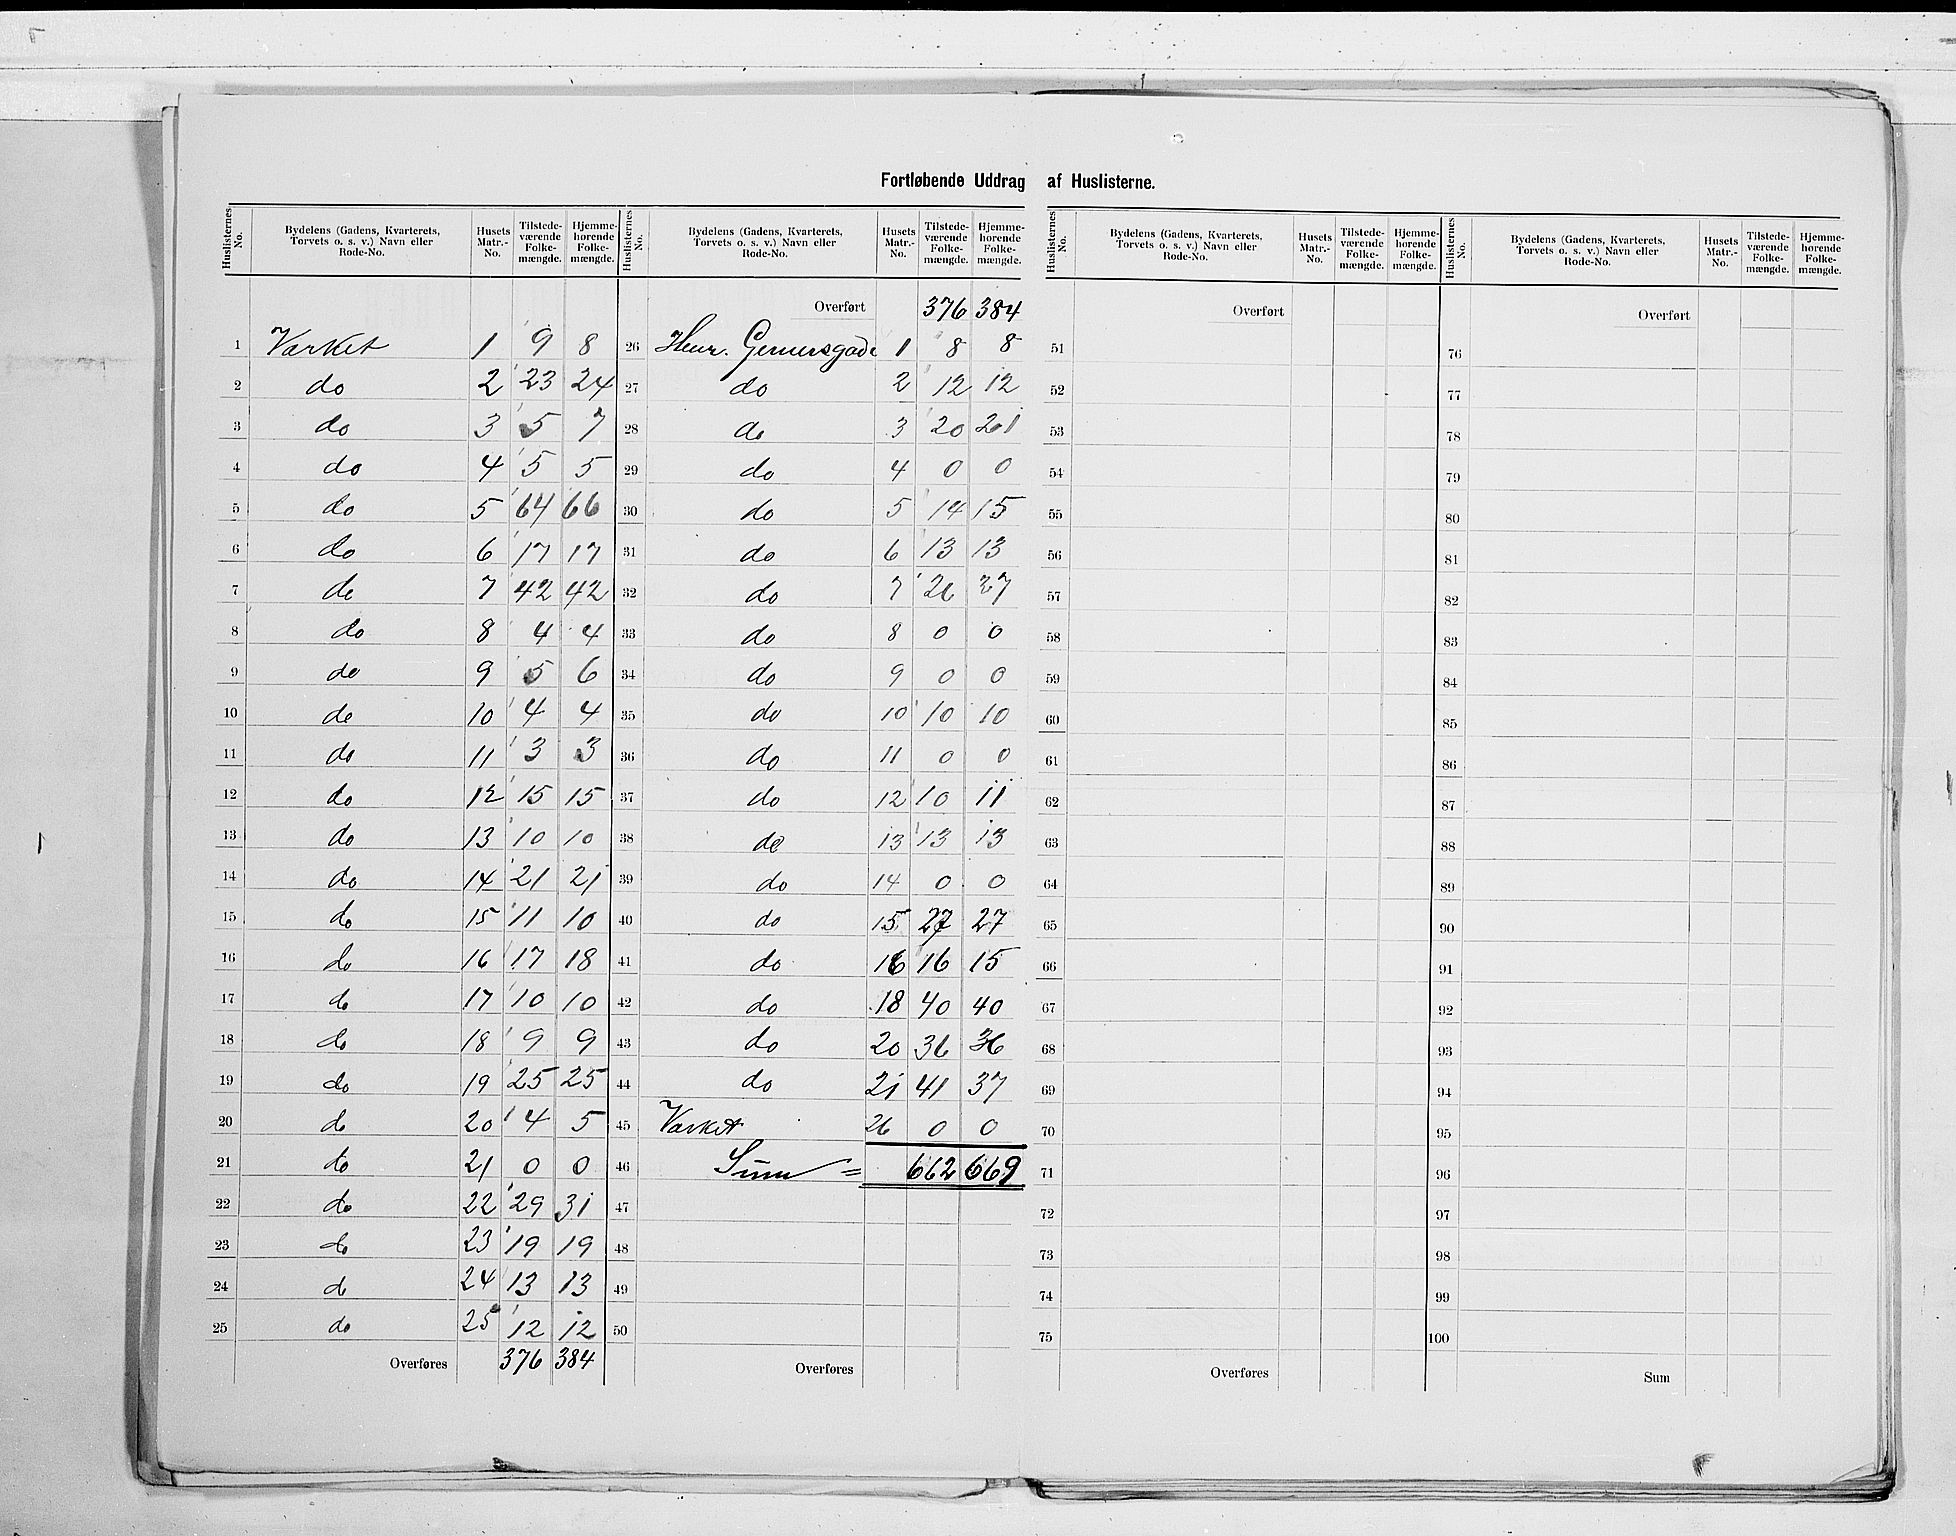 Fortløbende Uddrag af Huslisterne.
Huslisternes No. Bydelens (Gadens, Kvarterets, Torvets o. s. v.) Navn eller Rode-No. Husets Matr.-No. Tilstede-værende Folke-mængde. Hjemme-hørende Folke-mængde.
1 Værket 1 9 8
2 do 2 23 24
3 do 3 5 7
4 do 4 5 5
5 do 5 64 66
6 do 6 17 17
7 do 7 42 42
8 do 8 4 4
9 do 9 5 6
10 do 10 4 4
11 do 11 3 3
12 do 12 15 15
13 do 13 10 10
14 do 14 21 21
15 do 15 11 10
16 do 16 17 18
17 do 17 10 10
18 do 18 9 9
19 do 19 25 25
20 do 20 4 5
21 do 21 0 0
22 do 22 29 31
23 do 23 19 19
24 do 24 13 13
25 do 25 12 12
Overføres 376 384
Huslisternes No. Bydelens (Gadens, Kvarterets, Torvets o. s. v.) Navn eller Rode-No. Husets Matr.-No. Tilstede-værende Folke-mængde. Hjemme-hørende Folke-mængde.
Overført 376 384
26 Henr. Gernersgade 1 8 8
27 do 2 12 12
28 do 3 20 21
29 do 4 0 0
30 do 5 14 15
31 do 6 13 13
32 do 7 26 27
33 do 8 0 0
34 do 9 0 0
35 do 10 10 10
36 do 11 0 0
37 do 12 10 11
38 do 13 13 13
39 do 14 0 0
40 do 15 27 27
41 do 16 16 15
42 do 18 40 40
43 do 20 36 36
44 do 21 41 37
45 Værket 26 0 0
46 Sum = 662 669
47
48
49
50
Overføres
Huslisternes No. Bydelens (Gadens, Kvarterets, Torvets o. s. v.) Navn eller Rode-No. Husets Matr.-No. Tilstede-værende Folke-mængde. Hjemme-hørende Folke-mængde.
Overført
51
52
53
54
55
56
57
58
59
60
61
62
63
64
65
66
67
68
69
70
71
72
73
74
75
Overføres
Huslisternes No. Bydelens (Gadens, Kvarterets, Torvets o. s. v.) Navn eller Rode-No. Husets Matr.-No. Tilstede-værende Folke-mængde. Hjemme-hørende Folke-mængde.
Overført
76
77
78
79
80
81
82
83
84
85
86
87
88
89
90
91
92
93
94
95
96
97
98
99
100
Sum